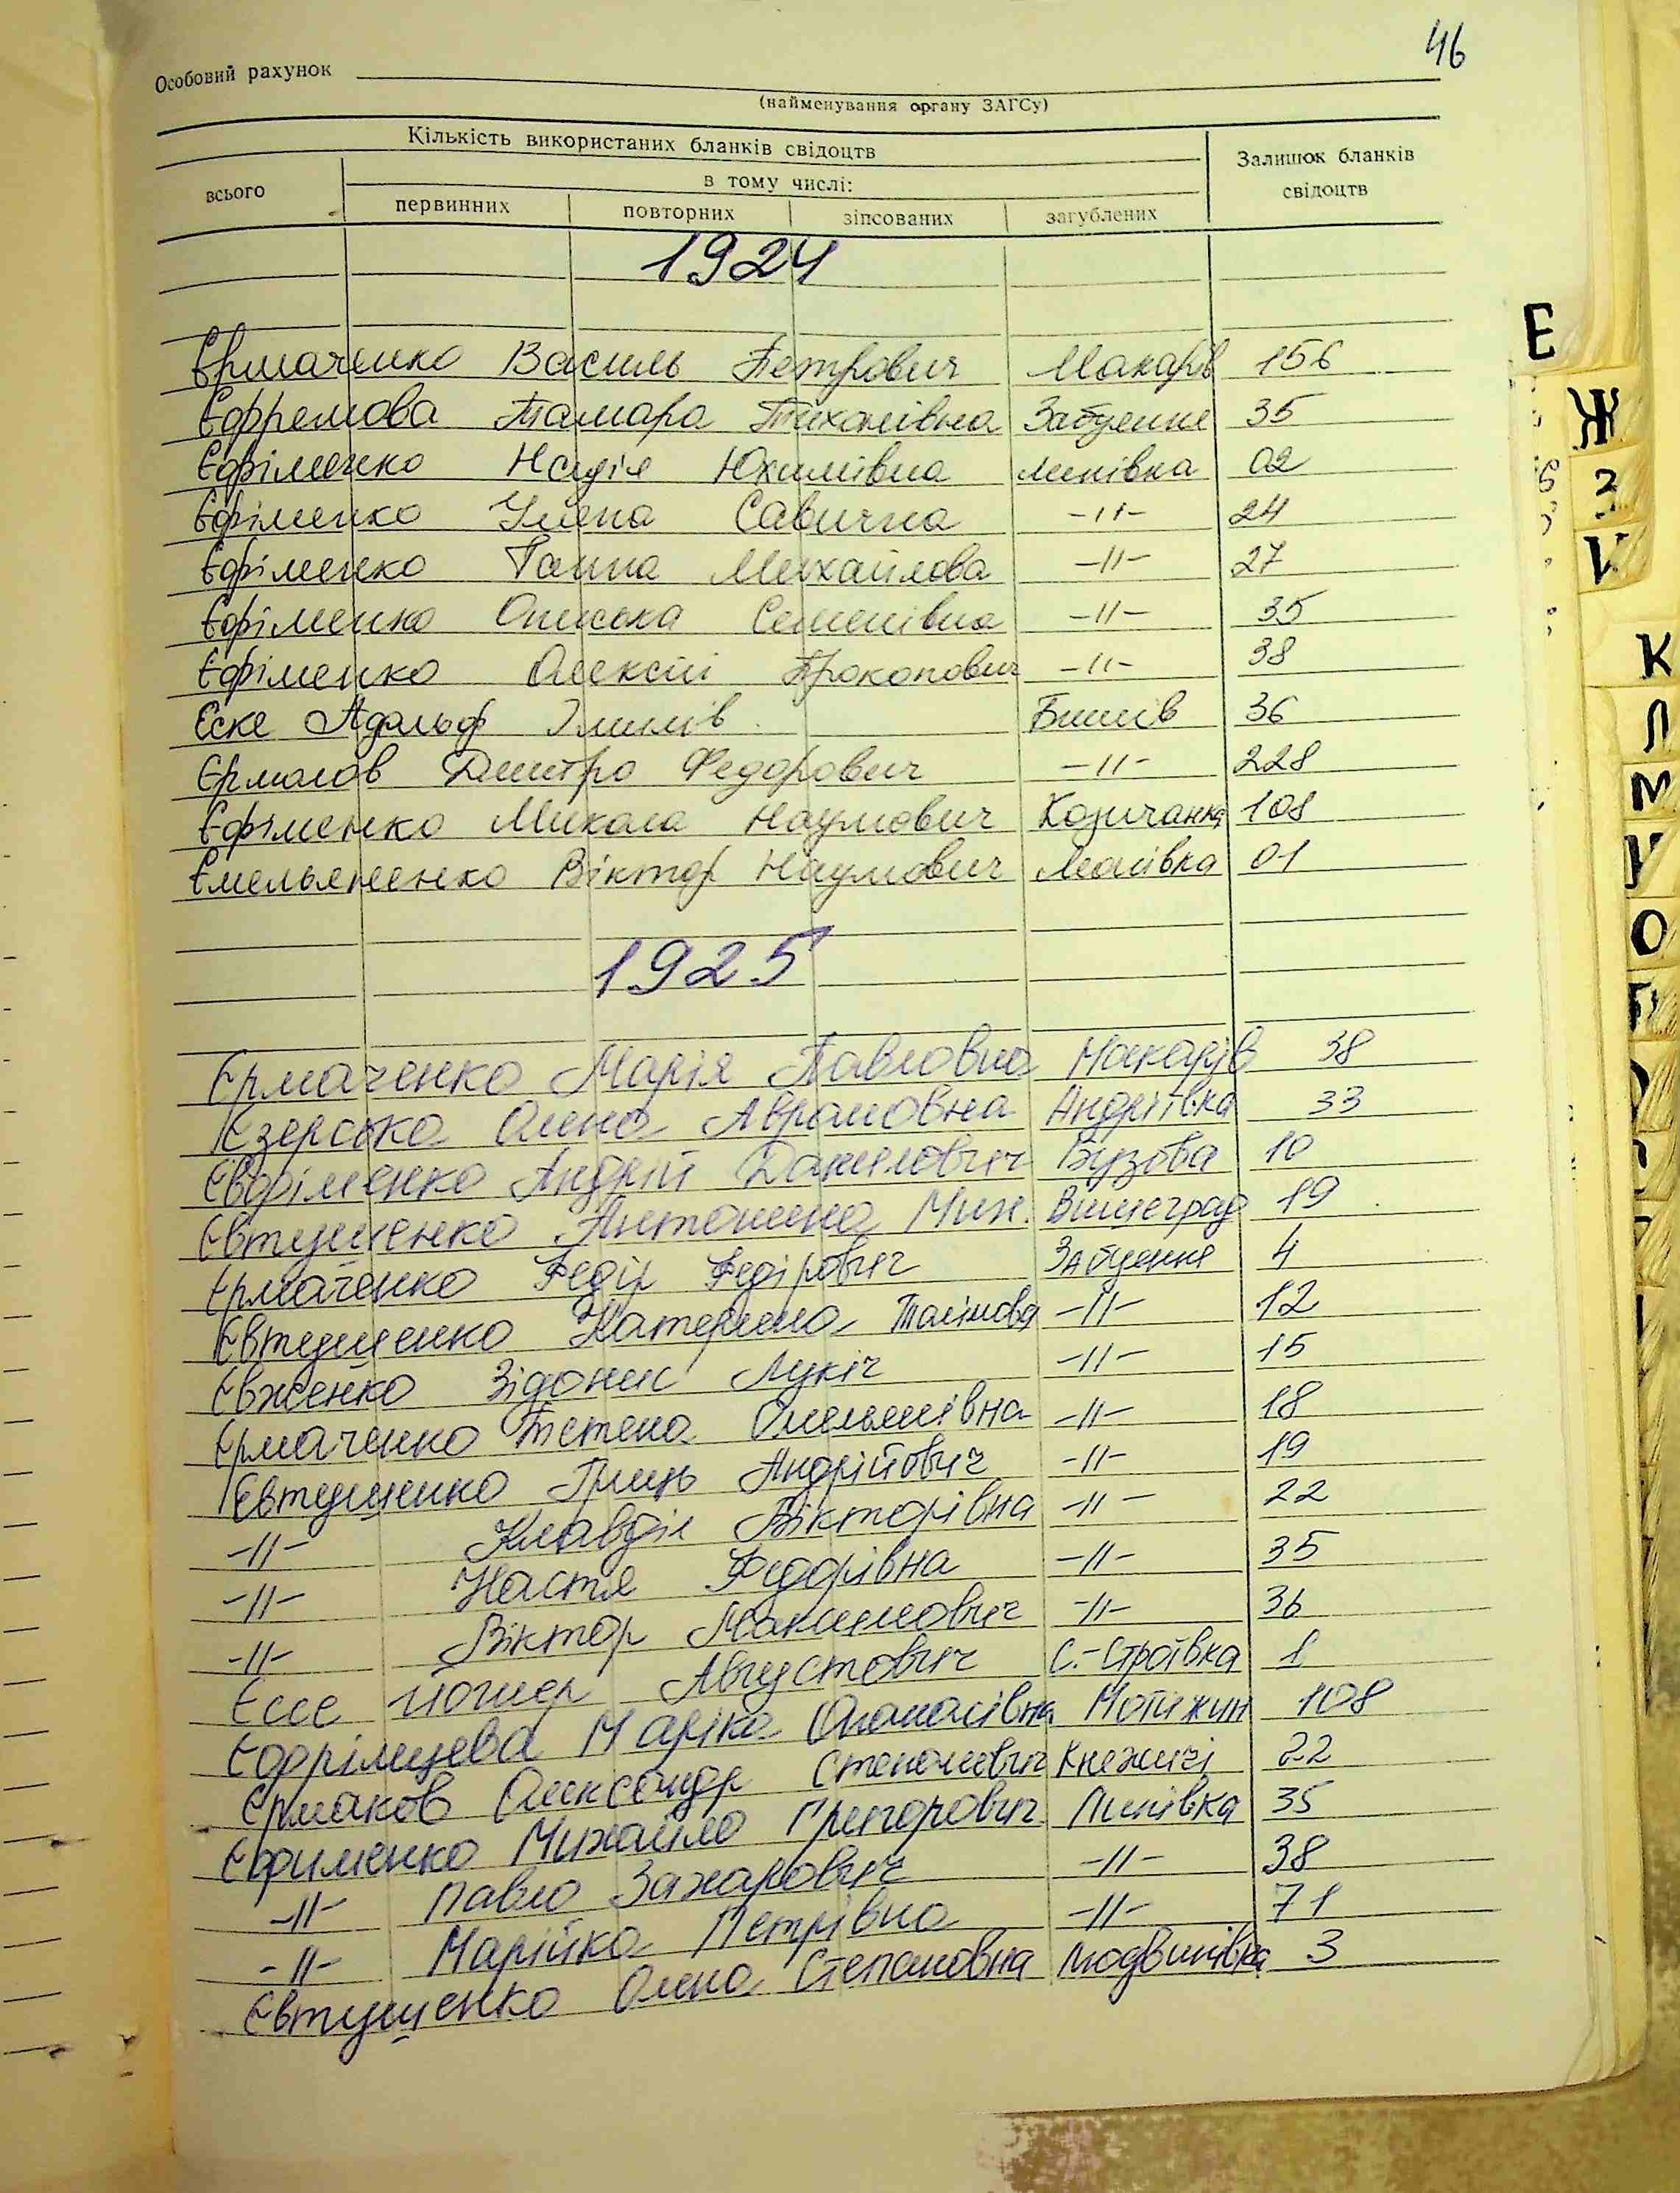 46
Особовий рахунок
(найменування органу ЗАГСу)
Кількість використаних бланків свідоцтв
Залишок бланків свідоцтв
всього
в тому числі:
первинних повторних зіпсованих загублених
1924
Єрмаченко Василь Петрович Макарів 156
Єфремова Тамара Тихонівна Забуяння 35
Єфіменко Надія Юхимівна Липівка 02
Єфіменко Уляна Савична -11- 24
Єфіменко Ганна Михайлова -11- 27
Єфіменко Ониська Семенівна -11- 35
Єфіменко Олексій Прокопович -11- 38
Еске Адольф Бишів 36
Єрмолов Дмитро Федорович -11- 228
Єфіменко Микола Наумович Козичанка 108
Ємельяненко Віктор Наумович 01
1925
Єрмаченко Марія Павловна Макарів 38
Єзерська Олена Аврамовна Андріївка 33
Євфіменко Андрій Данилович Бузова 10
Євтушенко Антонина Мих. Вишеград 19
Єрмаченко Федір Федірович Забуяння 4
Євтушенко Катерина -11- 12
Євженко Зідонис Лукіч -11- 15
Єрмаченко Тетена Омельянівна -11- 18
Євтушенко Гриць Андрійович -11- 19
-11- Клавдія Вікторівна -11- 22
-11- Настя Федорівна -11- 35
-11- Віктор Макимович -11- 36
Ессе Августович С.-Строївка 1
Марія Опанасівна Мотижин 108
Єрмаков Олександр Степанович Княжичі 22
Єфименко Михайло Григорович Липівка 35
-11- Павло Захарович -11- 38
-11- Марійка Петрівна -11- 71
Євтушенко Олена Степановна Людвинівка 3
Е
Ж
З
И
К
Л
М
О